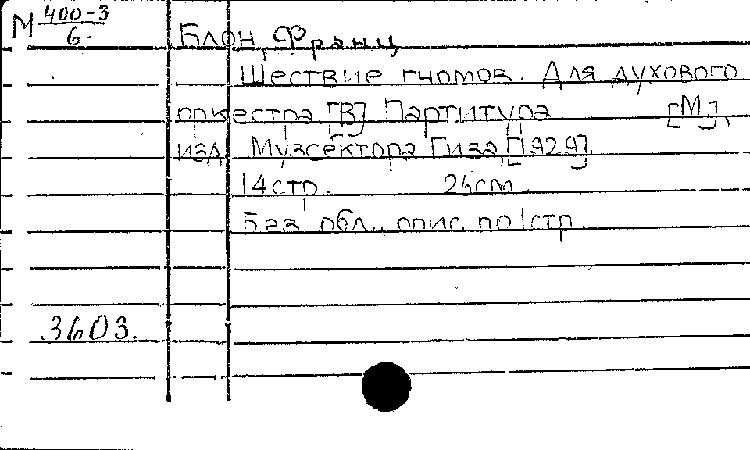 М 400-3
6.
Блон, Франц
Шествие гномов. Для духового
оркестра [В] Партитура [М],
изд. Музсектора Гиза [1929].
14 стр. 26 cm.
Без обл., опис. по 1 стр.
3603.